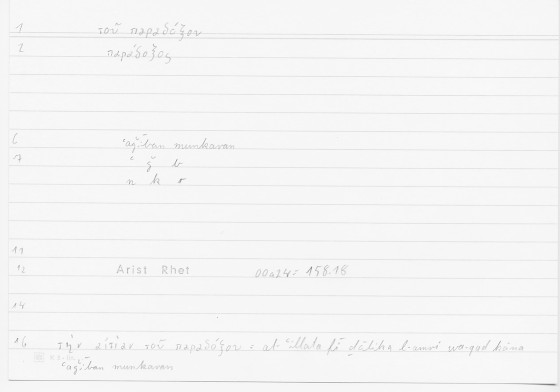 1 τοῦ παραδόξου
2 παράδοξος
6 ʿaǧīban munkaran
7 ʿ ǧ b
n k r
11
12 Arist Rhet 00a24= 158.18
14
16 τὴν αἰτίαν τοῦ παραδόξου = al-ʿillata fī ḏālika l-amri wa-qad kāna
ʿaǧīban munkaran